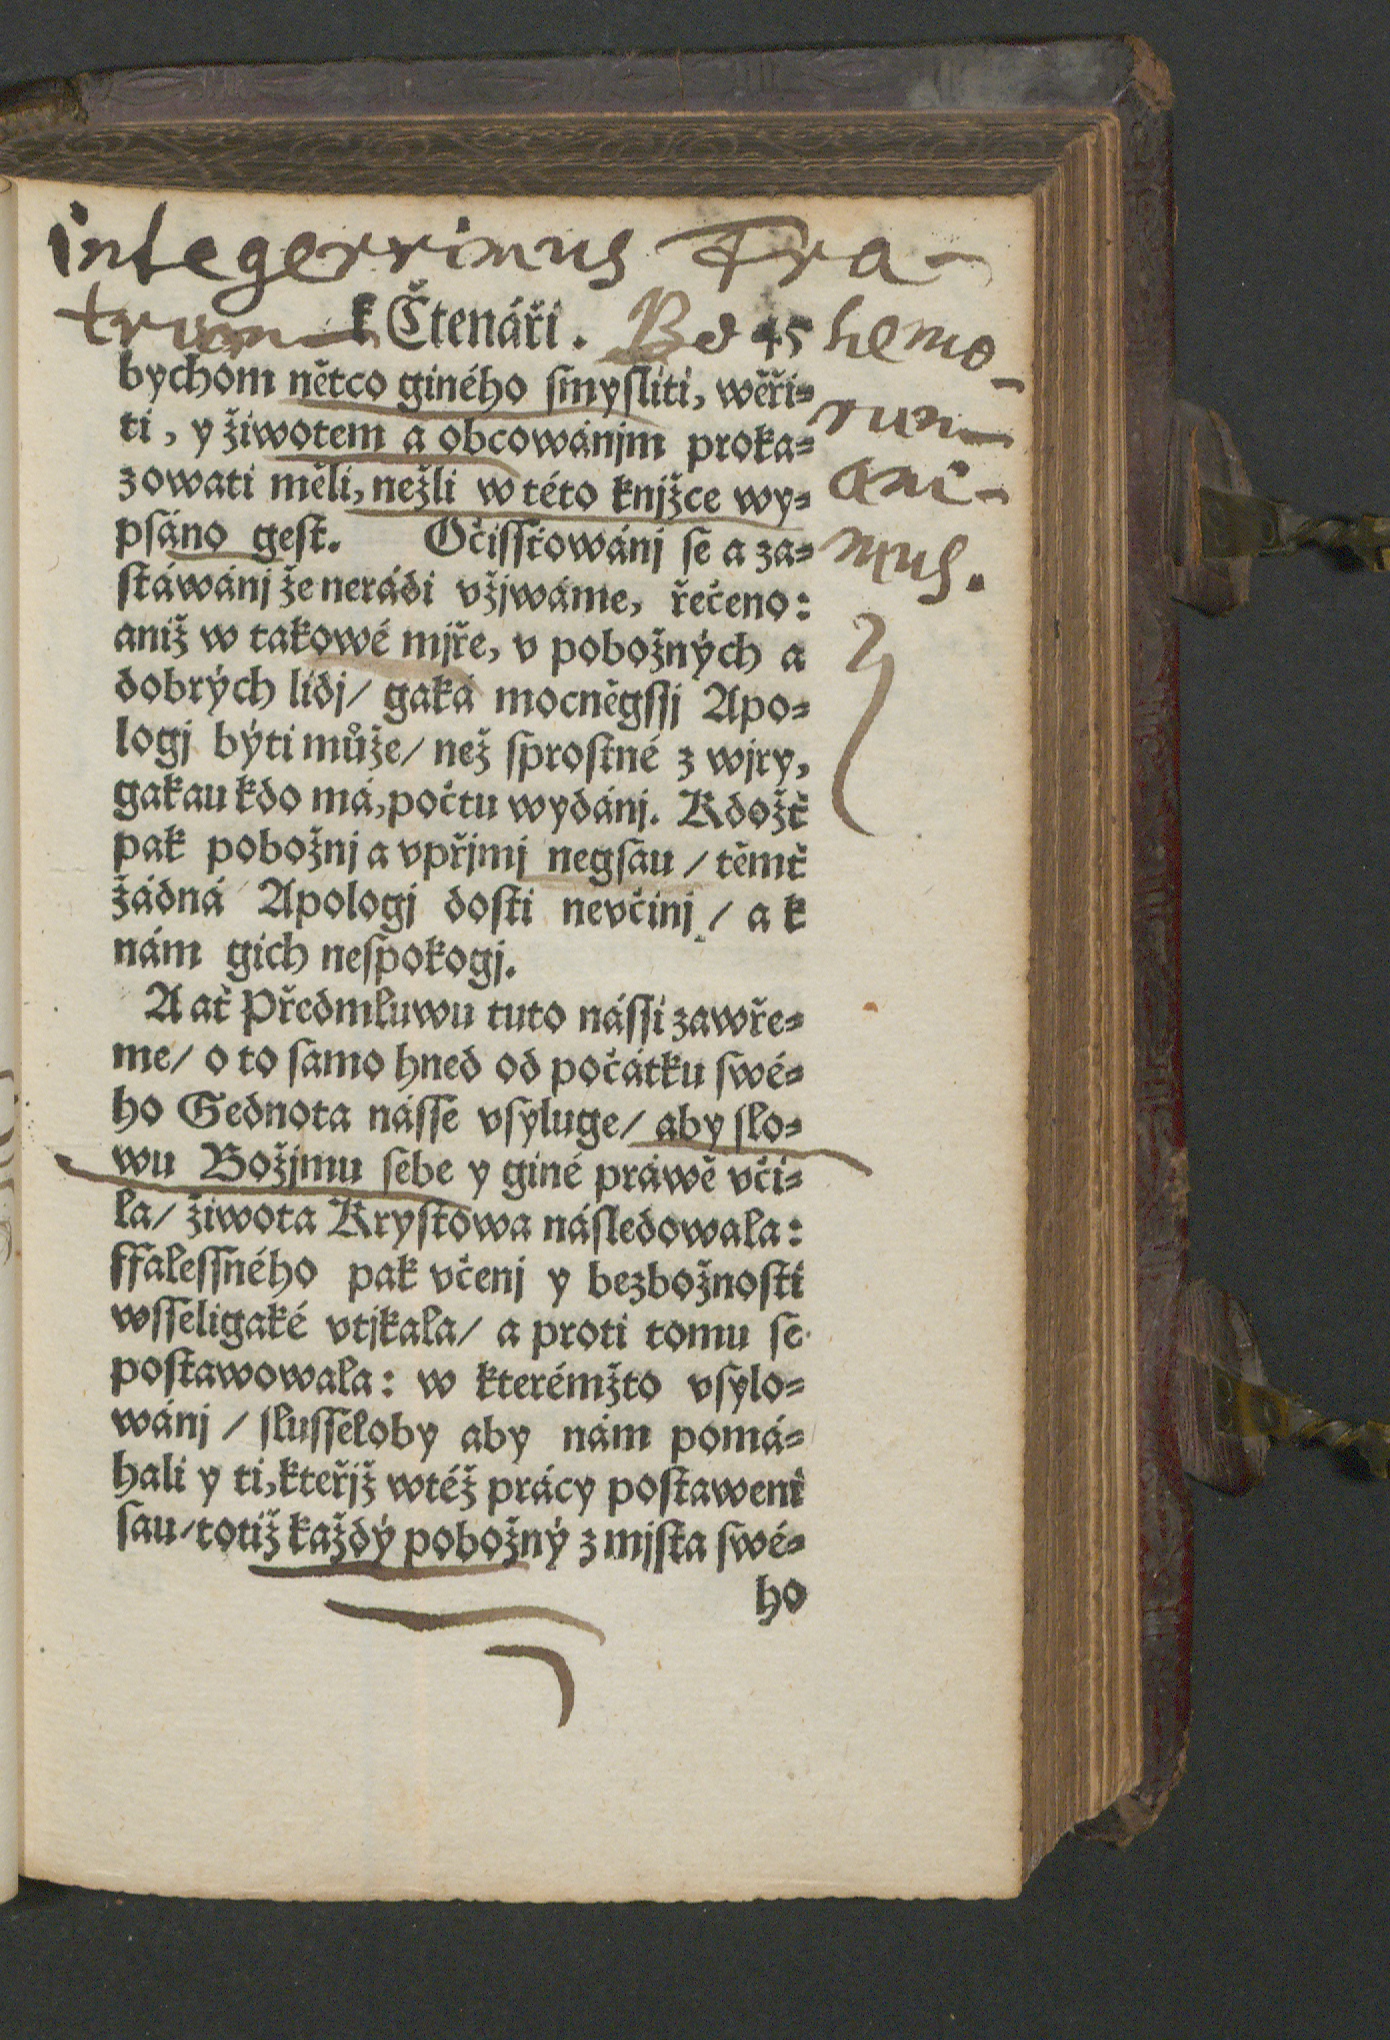 integerrimus Fra-
trum
k Čtenáři. 45
Bohemo-
rum
ani-
mus.
bychom nětco giného smysliti, wěři⸗
ti, y žiwotem a obcowánjm proka⸗
zowati měli, nežli w této knjžce wy⸗
psáno gest. Očissťowánj se a za⸗
stáwánj že nerádi vžjwáme, řečeno:
aniž w takowé mjře, v pobožných a
dobrých lidj/ gaká mocněgssj Apo⸗
logj býti může/ než sprostné z wjry,
gakau kdo má, počtu wydánj. Kdožť
pak pobožnj a vpřjmj negsau/ těmť
žádná Apologj dosti nevčinj/ a k
nám gich nespokogj.
A ať Předmluwu tuto nássi zawře⸗
me/ o to samo hned od počátku swé⸗
ho Gednota násse vsyluge/ aby slo⸗
wu Božjmu sebe y giné práwě vči⸗
la/ žiwota Krystowa následowala:
ffalessného pak včenj y bezbožnosti
wsseligaké vtjkala/ a proti tomu se
postawowala: w kterémžto vsylo⸗
wánj/ slusseloby aby nám pomá⸗
hali y ti, kteřjž w též prácy postaweni
sau/ totiž každý pobožný z mjsta swé⸗
ho